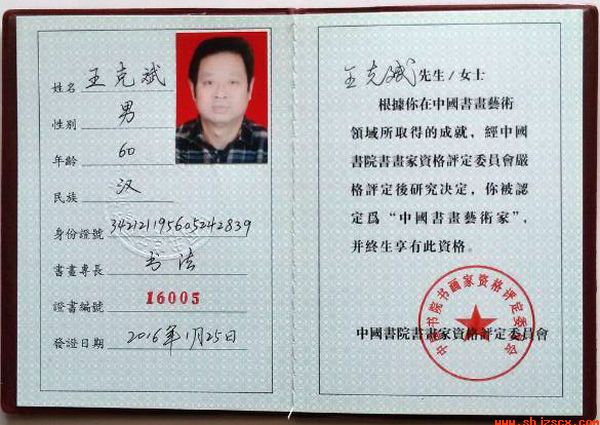 姓名 王克斌
性别 男
年齡 60
民族 汉
身份證號 342121195605242839
書畫專長 书法
證書編號 16005
發證日期 2016年1月25日
王克斌先生/女士
根據你在中國書畫藝術
領域所取得的成就，經中國
書院書畫家資格評定委員會嚴
格評定後研究决定，你被認
定爲“中國書畫藝術家”，
并終生享有此資格。
中国书院书画家资格评定委员会
中國書院書畫家資格評定委員會
www.shjzscx.com